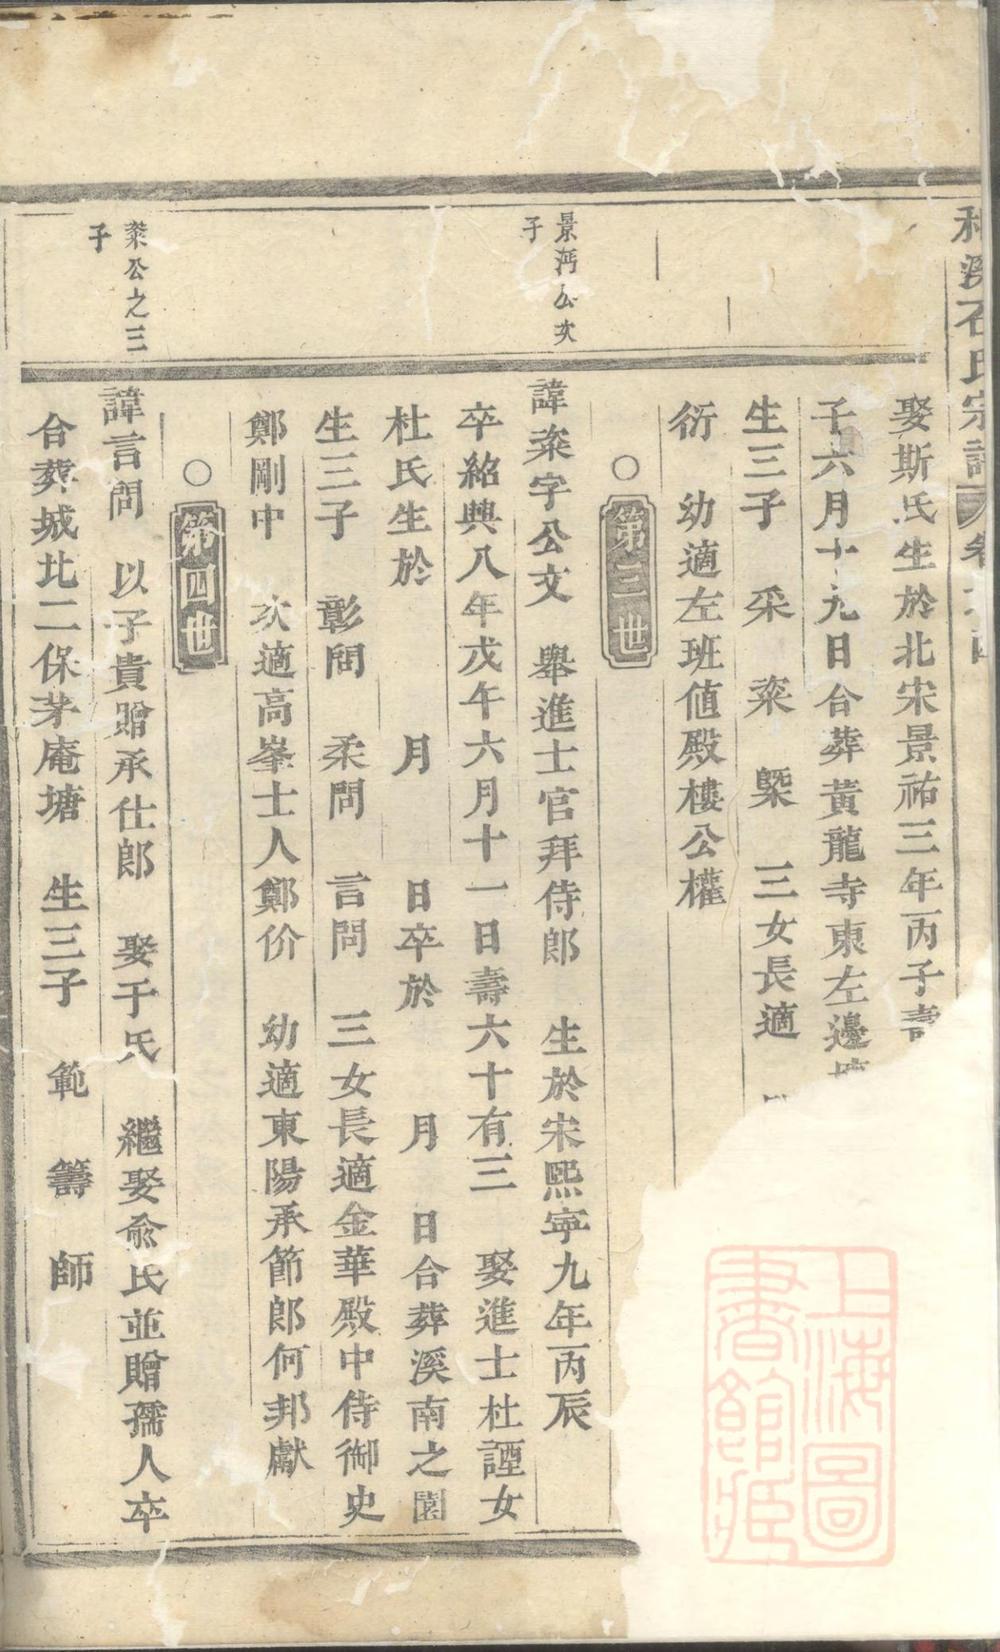 石氏宗譜
娶斯氏生於北宋景祐三年丙子壽
子六月十九日合葬黃龍寺東左邊
生三子　采　楶　槩　三女長適
衍　幼適左班値殿樓公權
○第三世
景沔公次
子
諱楶字公文　舉進士官拜侍郎　生於宋熙寧九年丙辰
卒紹興八年戊午六月十一日壽六十有三　娶進士杜諲女
杜氏生於　月　日卒於　月　日合葬溪南之園
生三子　彰問　柔問　言問　三女長適金華殿中侍御史
鄭剛中　次適高峯士人鄭价　幼適東陽承節郎何邦獻
○第四世
楶公之三
子
諱言問　以子貴贈承仕郎　娶于氏　繼娶俞氏並贈孺人卒
合葬城北二保茅庵塘　生三子　範　籌　師
上海圖
書館藏